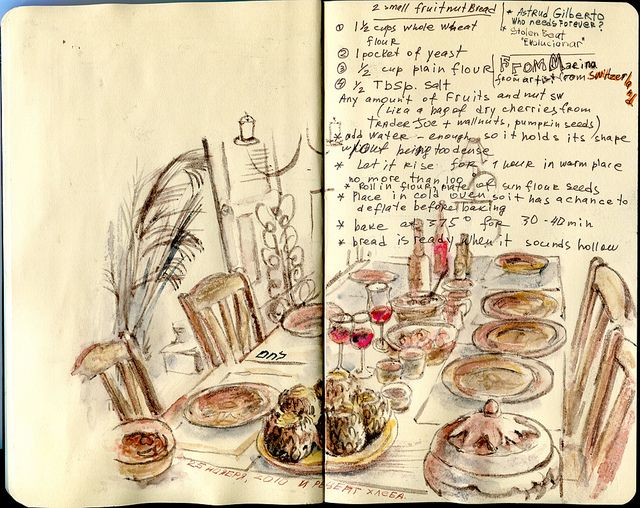 2 small fruitnut Bread
① 1½ cups whole wheat
flour
② 1 pocket of yeast
③ ½ cup plain flour
④ ½ Tbsp. Salt
Any amount of Fruits and nut
(Like a bag of dry cherries from
Trader Joe + wallnuts, pumpkin seeds)
* add water - enough, so it holds its shape
without being too dense
* Let it rise for 1 hour in warm place
no more than 100°
* Roll in flour, plate of sun flour seeds
* Place in cold oven, so it has a chance to
deflate before baking
* bake at 375° for 30-40 min
* bread is ready when it sounds hollow
* Astrud Gilberto
Who needs Forever?
* Stolen Beat
"Evolucionar"
From Marina
from artist from
25 ноября, 2010 и рецепт хлеба.